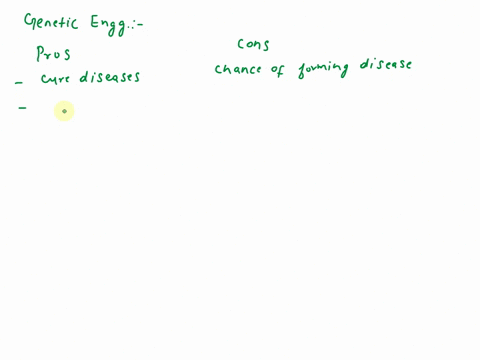 Genetic Engg.:-
Pros cons
- cure diseases chance of forming disease
-